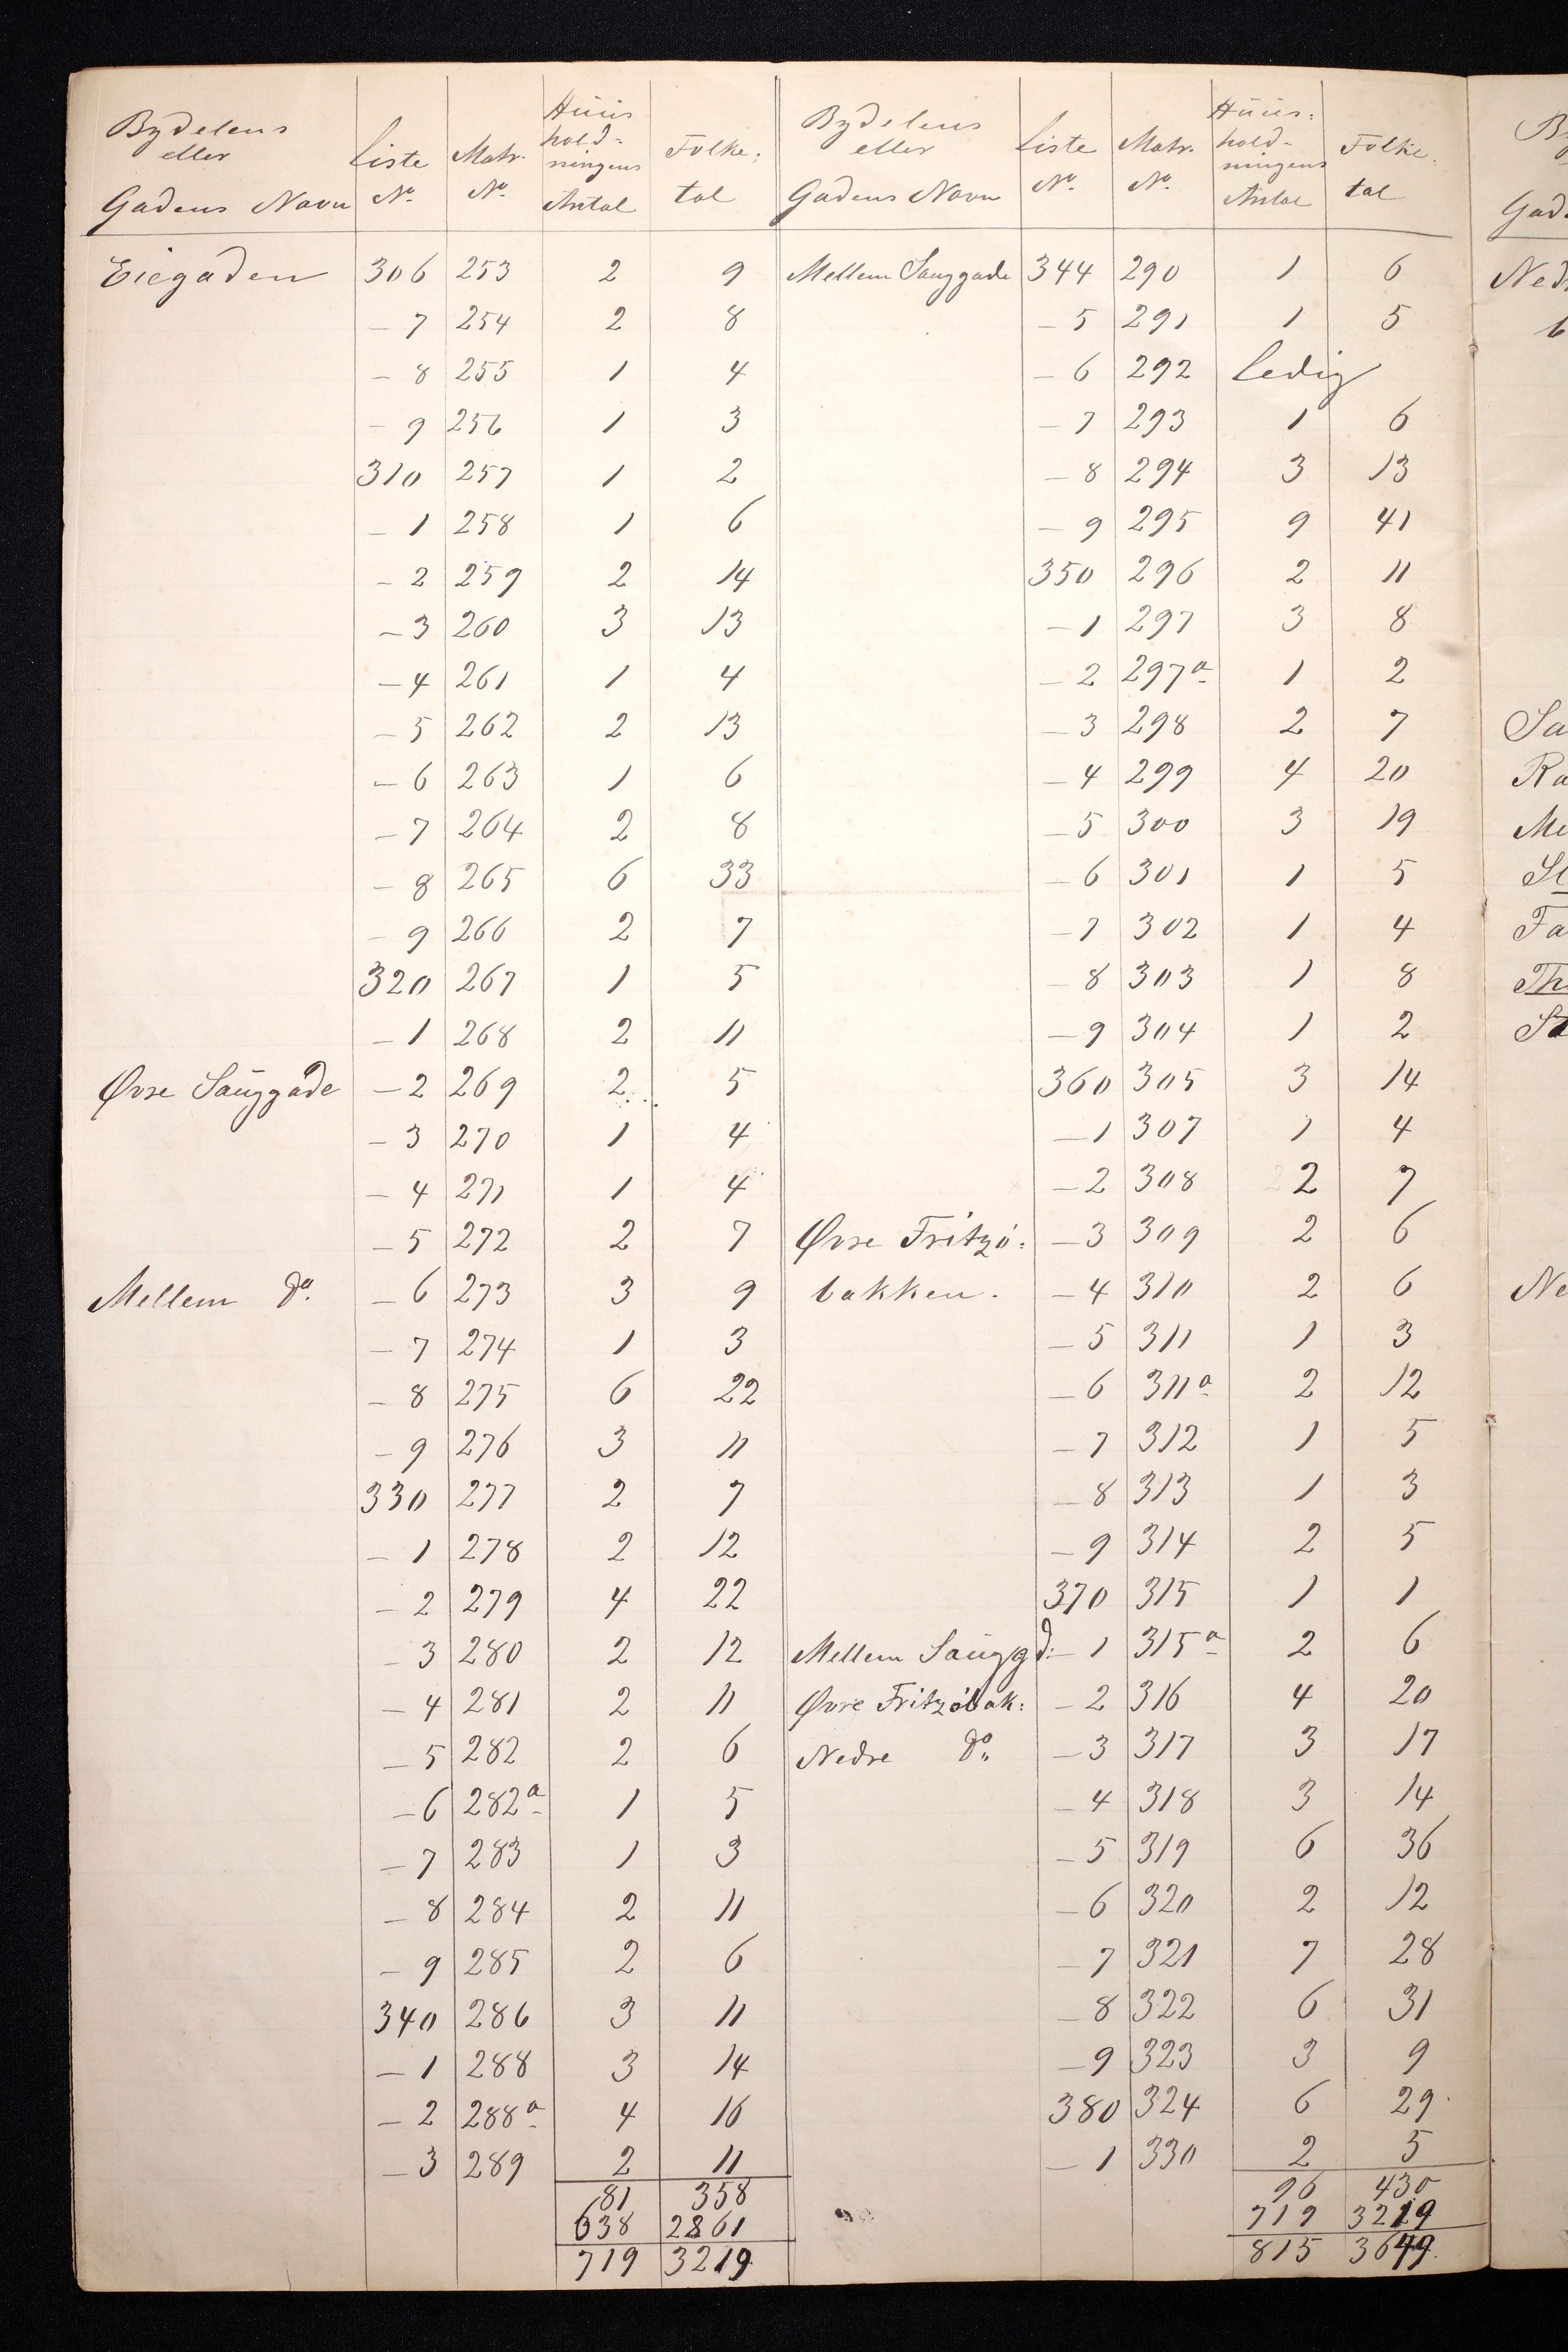 Bydelens eller Gadens Navn | Liste No. | Matr. No. | Huus holdningens Antal | Folke: tal
Eiegaden 306 253 2 9
- 7 254 2 8
- 8 255 1 4
- 9 256 1 3
310 257 1 2
- 1 258 1 6
- 2 259 2 14
- 3 260 3 13
- 4 261 1 4
- 5 262 2 13
- 6 263 1 6
- 7 264 2 8
- 8 265 6 33
- 9 266 2 7
320 267 1 5
- 1 268 2 11
Øvre Sauggade - 2 269 2 5
- 3 270 1 4
- 4 271 1 4
- 5 272 2 7
Mellem do. - 6 273 3 9
- 7 274 1 3
- 8 275 6 22
- 9 276 3 11
330 277 2 7
- 1 278 2 12
- 2 279 4 22
- 3 280 2 12
- 4 281 2 11
- 5 282 2 6
- 6 282a 1 5
- 7 283 1 3
- 8 284 2 11
- 9 285 2 6
340 286 3 11
- 1 288 3 14
- 2 288a 4 16
- 3 289 2 11
81 358
638 2861
719 3219
Bydelens eller Gadens Navn | Liste No. | Matr. No. | Huus: holdningens Antal | Folke: tal
Mellem Sauggade 344 290 1 6
- 5 291 1 5
- 6 292 Ledig
- 7 293 1 6
- 8 294 3 13
- 9 295 9 41
350 296 2 11
- 1 297 3 8
- 2 297a 1 2
- 3 298 2 7
- 4 299 4 20
- 5 300 3 19
- 6 301 1 5
- 7 302 1 4
- 8 303 1 8
- 9 304 1 2
360 305 3 14
- 1 307 1 4
- 2 308 2 7
Øvre Fritzø: - 3 309 2 6
bakken. - 4 310 2 6
- 5 311 1 3
- 6 311a 2 12
- 7 312 1 5
- 8 313 1 3
- 9 314 2 5
370 315 1 1
Mellem Sauggd: - 1 315a 2 6
Øvre Fritzøbak: - 2 316 4 20
Nedre do. - 3 317 3 17
- 4 318 3 14
- 5 319 6 36
- 6 320 2 12
- 7 321 7 28
- 8 322 6 31
- 9 323 3 9
380 324 6 29
- 1 330 2 5
96 430
719 3219
815 3649
By
Gad
Ned
b
Sa
Ra
Me
St
Fa
Th
St
Ne